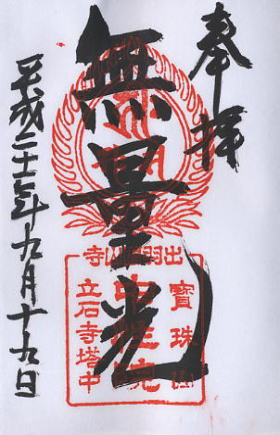 奉拝
無量光
平成二十一年九月十九日
寳珠山
中性院
立石寺塔中